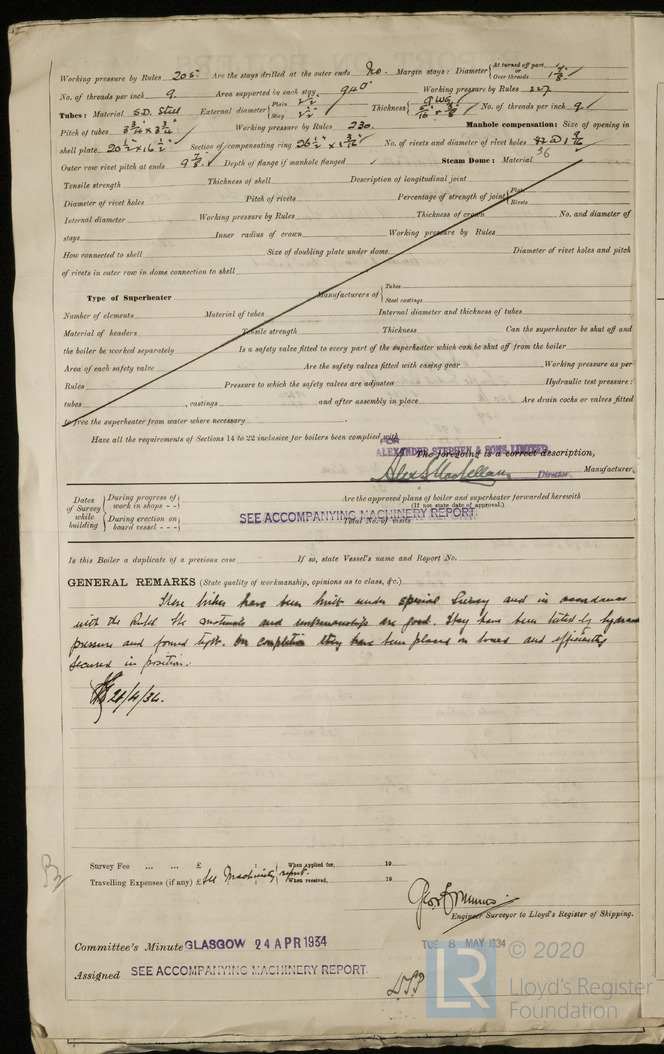 Working pressure by Rules 205. Are the stays drilled at the outer ends No. Margin stays: Diameter { At turned off part, or Over threads 1 7/8" ✓
No. of threads per inch 9. Area supported by each stay 940" ✓ Working pressure by Rules 227
Tubes: Material S.D. Steel External diameter { Plain 2 1/2" Stay 2 1/2" ✓ Thickness { 9 WG 5/16" & 3/8" ✓ No. of threads per inch 9 ✓
Pitch of tubes 3 3/4" x 3 3/4" ✓ Working pressure by Rules 230. Manhole compensation: Size of opening in
shell plate 20 1/2" x 16 1/2" ✓ Section of compensating ring 26 1/2" x 1 3/16" ✓ No. of rivets and diameter of rivet holes 36 @ 1 9/16" ✓
Outer row rivet pitch at ends 9 7/8". ✓ Depth of flange if manhole flanged ✓ Steam Dome: Material
Tensile strength Thickness of shell Description of longitudinal joint
Diameter of rivet holes Pitch of rivets Percentage of strength of joint { Plate Rivets
Internal diameter Working pressure by Rules Thickness of crown No. and diameter of
stays Inner radius of crown Working pressure by Rules
How connected to shell Size of doubling plate under dome Diameter of rivet holes and pitch
of rivets in outer row in dome connection to shell
Type of Superheater Manufacturers of { Tubes Steel castings
Number of elements Material of tubes Internal diameter and thickness of tubes
Material of headers Tensile strength Thickness Can the superheater be shut off and
the boiler be worked separately Is a safety valve fitted to every part of the superheater which can be shut off from the boiler
Area of each safety valve Are the safety valves fitted with easing gear Working pressure as per
Rules Pressure to which the safety valves are adjusted Hydraulic test pressure:
tubes , castings and after assembly in place Are drain cocks or valves fitted
to free the superheater from water where necessary
Have all the requirements of Sections 14 to 22 inclusive for boilers been complied with
FOR
ALEXANDER STEPHEN & SONS, LIMITED
The foregoing is a correct description,
Director. Manufacturer.
Dates of Survey while building { During progress of work in shops - - Are the approved plans of boiler and superheater forwarded herewith
(If not state date of approval.)
During erection on board vessel - - - SEE ACCOMPANYING MACHINERY REPORT. Total No. of visits
Is this Boiler a duplicate of a previous case If so, state Vessel's name and Report No.
GENERAL REMARKS (State quality of workmanship, opinions as to class, &c.)
These boilers have been built under special Survey and in accordance
with the Rules. The materials and workmanship are good. They have been tested by hydraulic
pressure and found tight. On completion they have been placed on board and efficiently
secured in position.
Survey Fee ... ... £ : : When applied for, 19
Travelling Expenses (if any) £ See Machinery report. When received, 19
Engineer Surveyor to Lloyd's Register of Shipping.
Committee's Minute GLASGOW 24 APR 1934
TUE 8 MAY 1934
Assigned SEE ACCOMPANYING MACHINERY REPORT.
LR © 2020
Lloyd's Register
Foundation